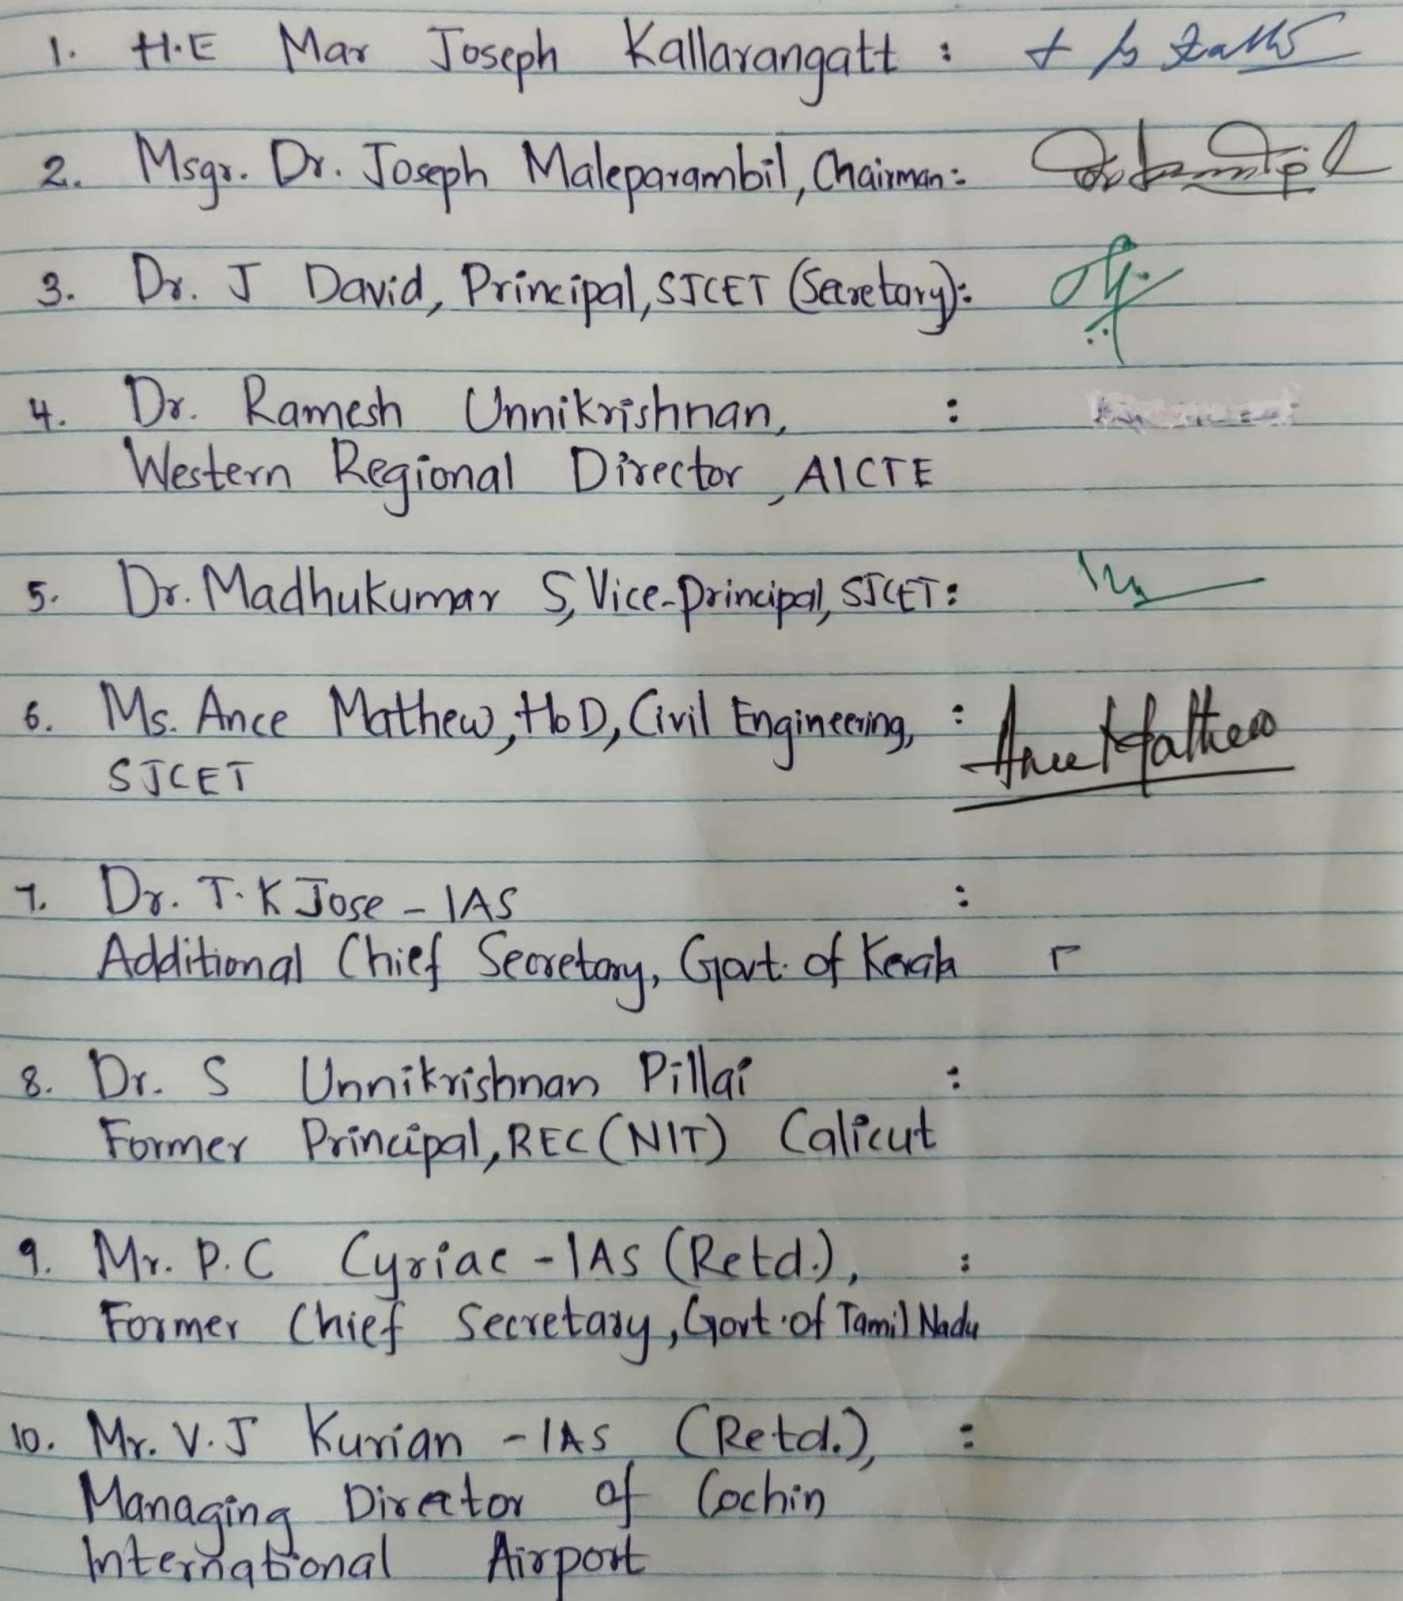 1. H.E Mar Joseph Kallarangatt :
2. Msgr. Dr. Joseph Maleparambil, Chairman:
3. Dr. J David, Principal, SJCET (Secretary):
4. Dr. Ramesh Unnikrishnan, :
Western Regional Director, AICTE
5. Dr. Madhukumar S, Vice-principal, SJCET:
6. Ms. Ance Mathew, HoD, Civil Engineering, : Ance Mathew
SJCET
7. Dr. T.K Jose - IAS :
Additional Chief Secretary, Govt. of Kerala
8. Dr. S Unnikrishnan Pillai :
Former Principal, REC (NIT) Calicut
9. Mr. P.C Cyriac - IAS (Retd.), :
Former Chief Secretary, Govt. of Tamil Nadu
10. Mr. V.J Kurian - IAS (Retd.), :
Managing Director of Cochin
International Airport